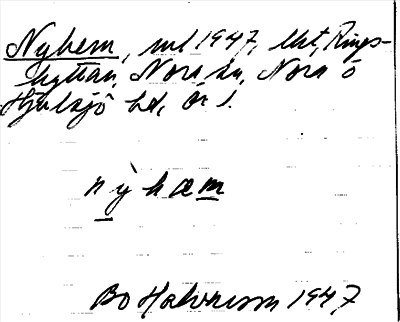 Nyhem, ml 1947, lht, Rings-
hyttan, Nora sn, Nora o
Hjulsjö hd, Ör l.
nỳhæm
Bo Halvarsson 1947